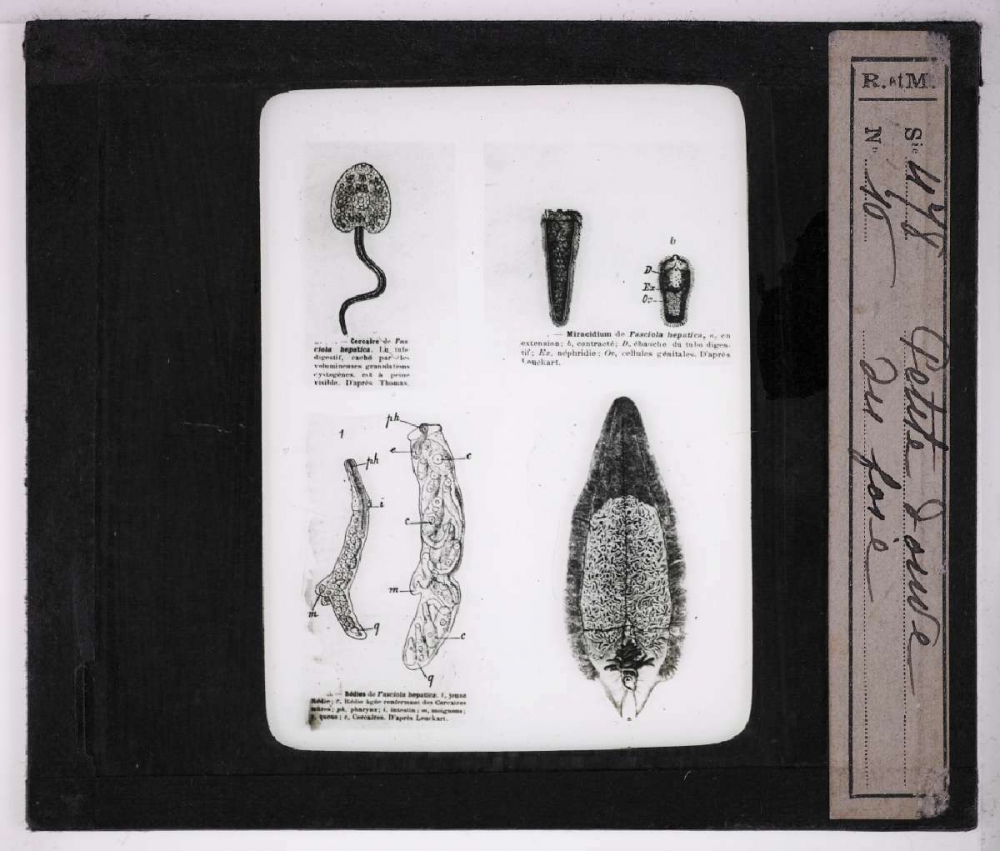 Cercaire de Fas
ciola hepatica. Le tube
digestif, caché par les
volumineuses granulations
cystogènes, est à peine
visible. D'après Thomas.
b
D
Ex
Oc
— Miracidium de Fasciola hepatica, a, en
extension; b, contracté; D, ébauche du tube diges-
tif; Ex, néphridie; Oc, cellules génitales. D'après
Leuckart.
1
ph
i
m
q
ph
e
c
c
m
c
q
— Rédies de Fasciola hepatica. 1, jeune
Rédie; 2, Rédie âgée renfermant des Cercaires
mûres; ph, pharynx; i, intestin; m, moignons;
q, queue; c, Cercaires. D'après Leuckart.
R. et M.
Sie 478
No 16
Petite Douve
du foie